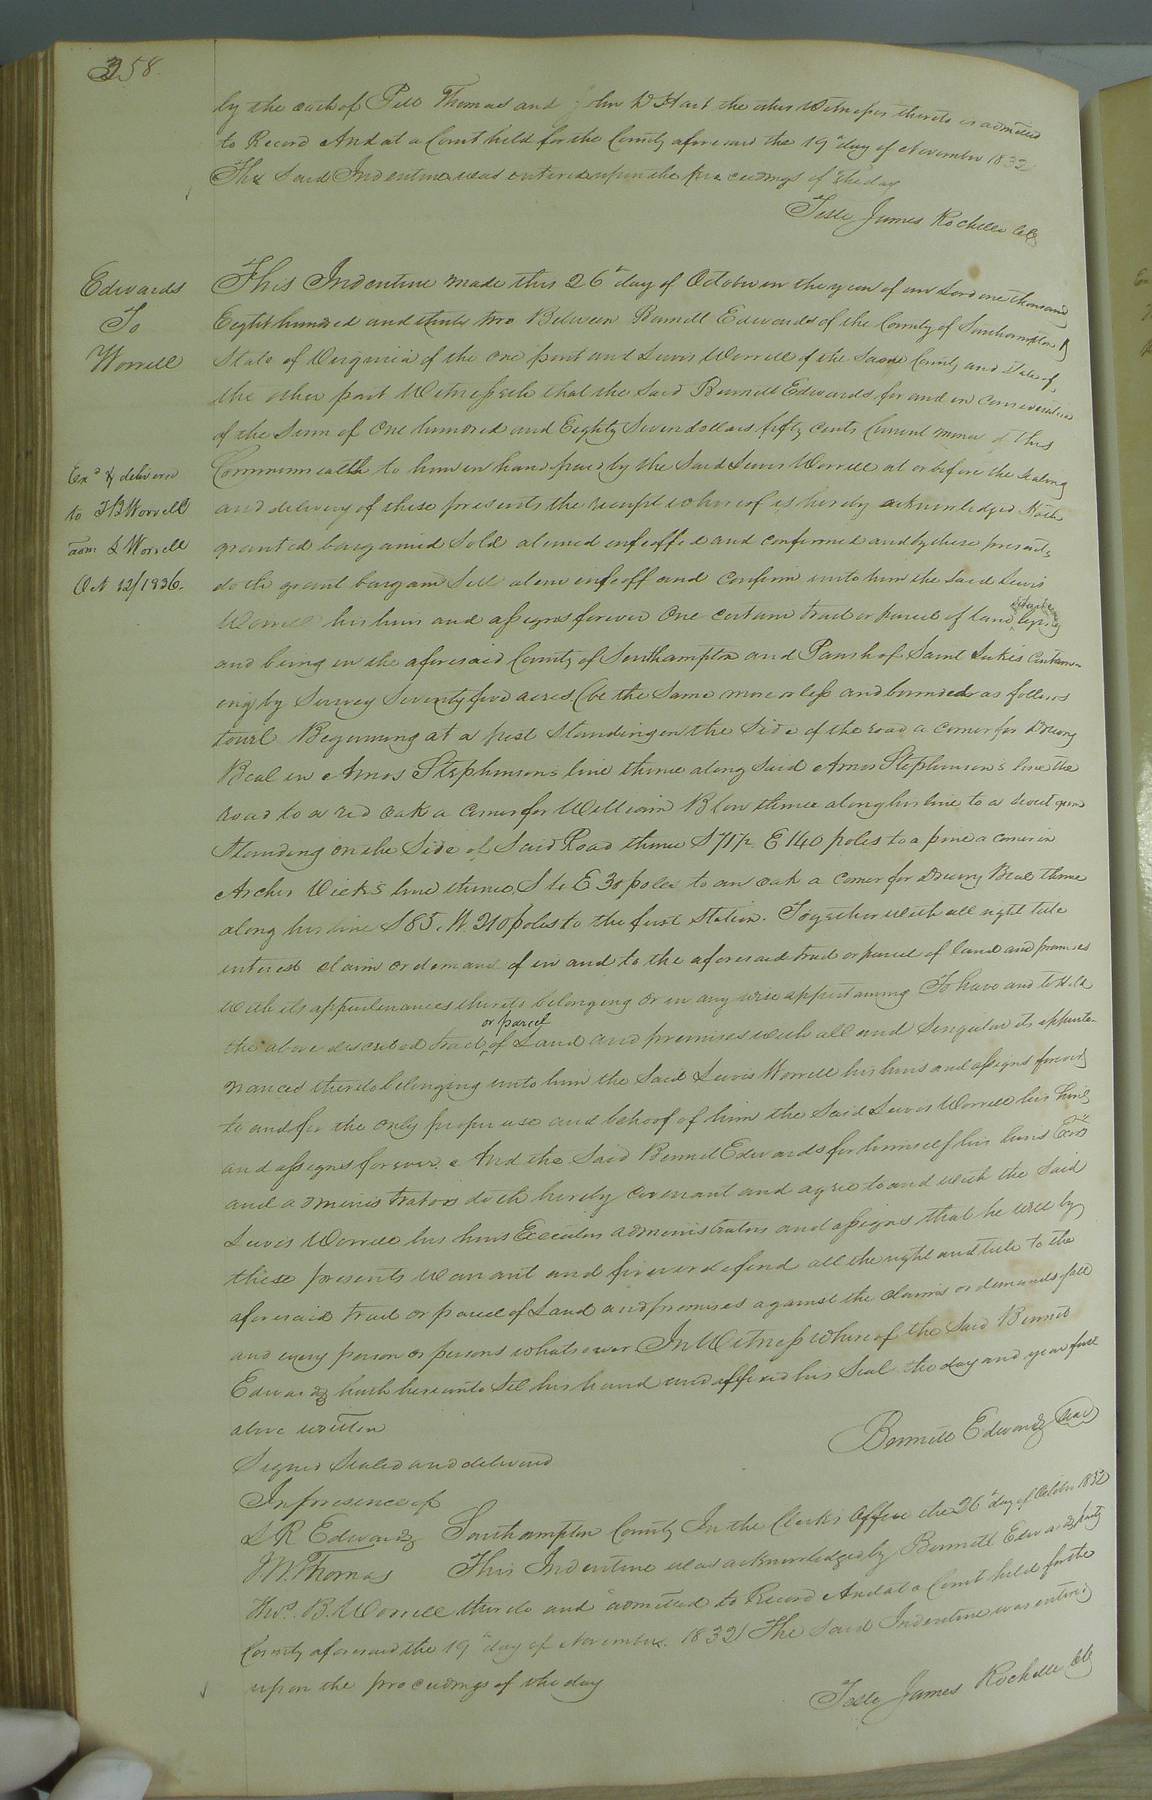 358.
by the oath of Peto Thomas and John D Hart the other Witnesses thereto is admitted
to Record And at a Court held for the County aforesaid the 19th day of November 1832
The Said Indenture was entered upon the proceedings of the day
Teste James Rochelle Clk
Edwards
To
Worrell
Exd & delivered
to T B Worrell
adm L Worrell
Oct 12/1836.
This Indenture made this 26th day of October in the year of our Lord one thousand
Eight hundred and thirty two Between Bennett Edwards of the County of Southampton &
State of Virginia of the one part and Lewis Worrell of the Same County and State of
the other part Witnesseth that the Said Bennett Edwards for and in Consideration
of the Sum of One hundred and Eighty Seven dollars fifty cents Current money of this
Commonwealth to him in hand paid by the Said Lewis Worrell at or before the Sealing
and delivery of these presents the receipt whereof is hereby acknowledged Hath
granted bargained Sold aliened enfeoffed and confirmed and by these presents
doth grant bargain Sell alien enfeoff and Confirm unto him the Said Lewis
Worrell his heirs and assigns forever One certain tract or parcel of land situate lying
and being in the aforesaid County of Southampton and Parish of Saint Lukes Contain-
ing by Survey Seventy five acres (be the Same more or less and bounded as follows
towit Beginning at a post Standing on the Side of the road a corner for Drewry
Beal in Amos Stephenson's line thence along Said Amos Stephenson's line the
road to a red oak a Corner for William Blow thence along his line to a
Standing on the Side of Said Road thence S 71½ E 140 poles to a pine a corner in
Archer Vick's line thence S 16 E 30 poles to an oak a corner for Drewry Beal thence
along his line S 85. W. 210 poles to the first Station. Together with all right title
interest claim or demand of in and to the aforesaid tract or parcel of land and premises
with its appurtenances thereto belonging or in any wise appertaining To have and to Hold
the above described tract or parcel of Land and premises with all and Singular its appurte-
nances thereto belonging unto him the Said Lewis Worrell his heirs and assigns forever
to and for the only proper use and behoof of him the Said Lewis Worrell his heirs
and assigns forever. And the Said Bennet Edwards for himself his heirs Exors
and administrators doth hereby covenant and agree to and with the Said
Lewis Worrell his heirs Executors administrators and assigns that he will by
these presents warrant and forever defend all the right and title to the
aforesaid tract or parcel of Land and premises against the claims or demands of all
and every person or persons whatsoever In Witness whereof the Said Bennet
Edwards hath hereunto Set his hand and affixed his Seal the day and year first
above written
Bennett Edwards Seal
Signed Sealed and delivered
In presence of
L R Edwards
M. Thomas
Thos. B. Worrell
Southampton County In the Clerk's Office the 26th day of October 1832
This Indenture was acknowledged by Bennett Edwards party
thereto and admitted to Record And at a Court held for the
County aforesaid the 19th day of November. 1832 The Said Indenture was entered
upon the proceedings of the day
Teste James Rochelle Clk